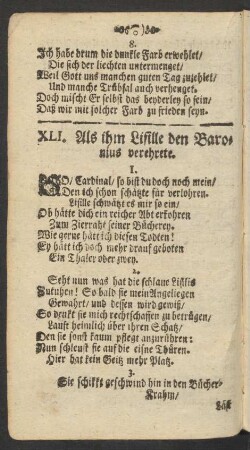 8.
Ich habe drum die dunkle Farb erwehlet/
Die sich der liechten untermenget/
Weil Gott uns manchen guten Tag zuzehlet/
Und manche Trübsal auch verhenget.
Doch mischt Er selbst das beyderley so fein/
Daß wir mit solcher Farb zu frieden seyn.
XLI. Als ihm Lisille den Baro-
nius verehrete.
1.
SO/ Cardinal/ so bist du doch noch mein/
Den ich schon schätzte für verlohren.
Lisille schwätzt es mir so ein/
Ob hätte dich ein reicher Abt erkohren
Zum Zierraht seiner Bücherey.
Wie gerne hätt ich diesen Todten!
Ey hätt ich doch mehr drauf geboten
Ein Thaler ober zwey.
2.
Seht nun was hat die schlaue Lisilis
Fur uhen! So bald sie mein Angeliegen
Gewahrt/ und dessen wird gewiß/
So denkt sie mich rechtschaffen zu betrügen/
Laust heimlich über ihren Schatz/
Den sie sonst kaum pflegt anzurühren:
Nun schleust sie auf die eisne Thüren.
Hier hat kein Geitz mehr Platz.
3.
Sie schikkt geschwind hin in den Bücher-
Krahm/